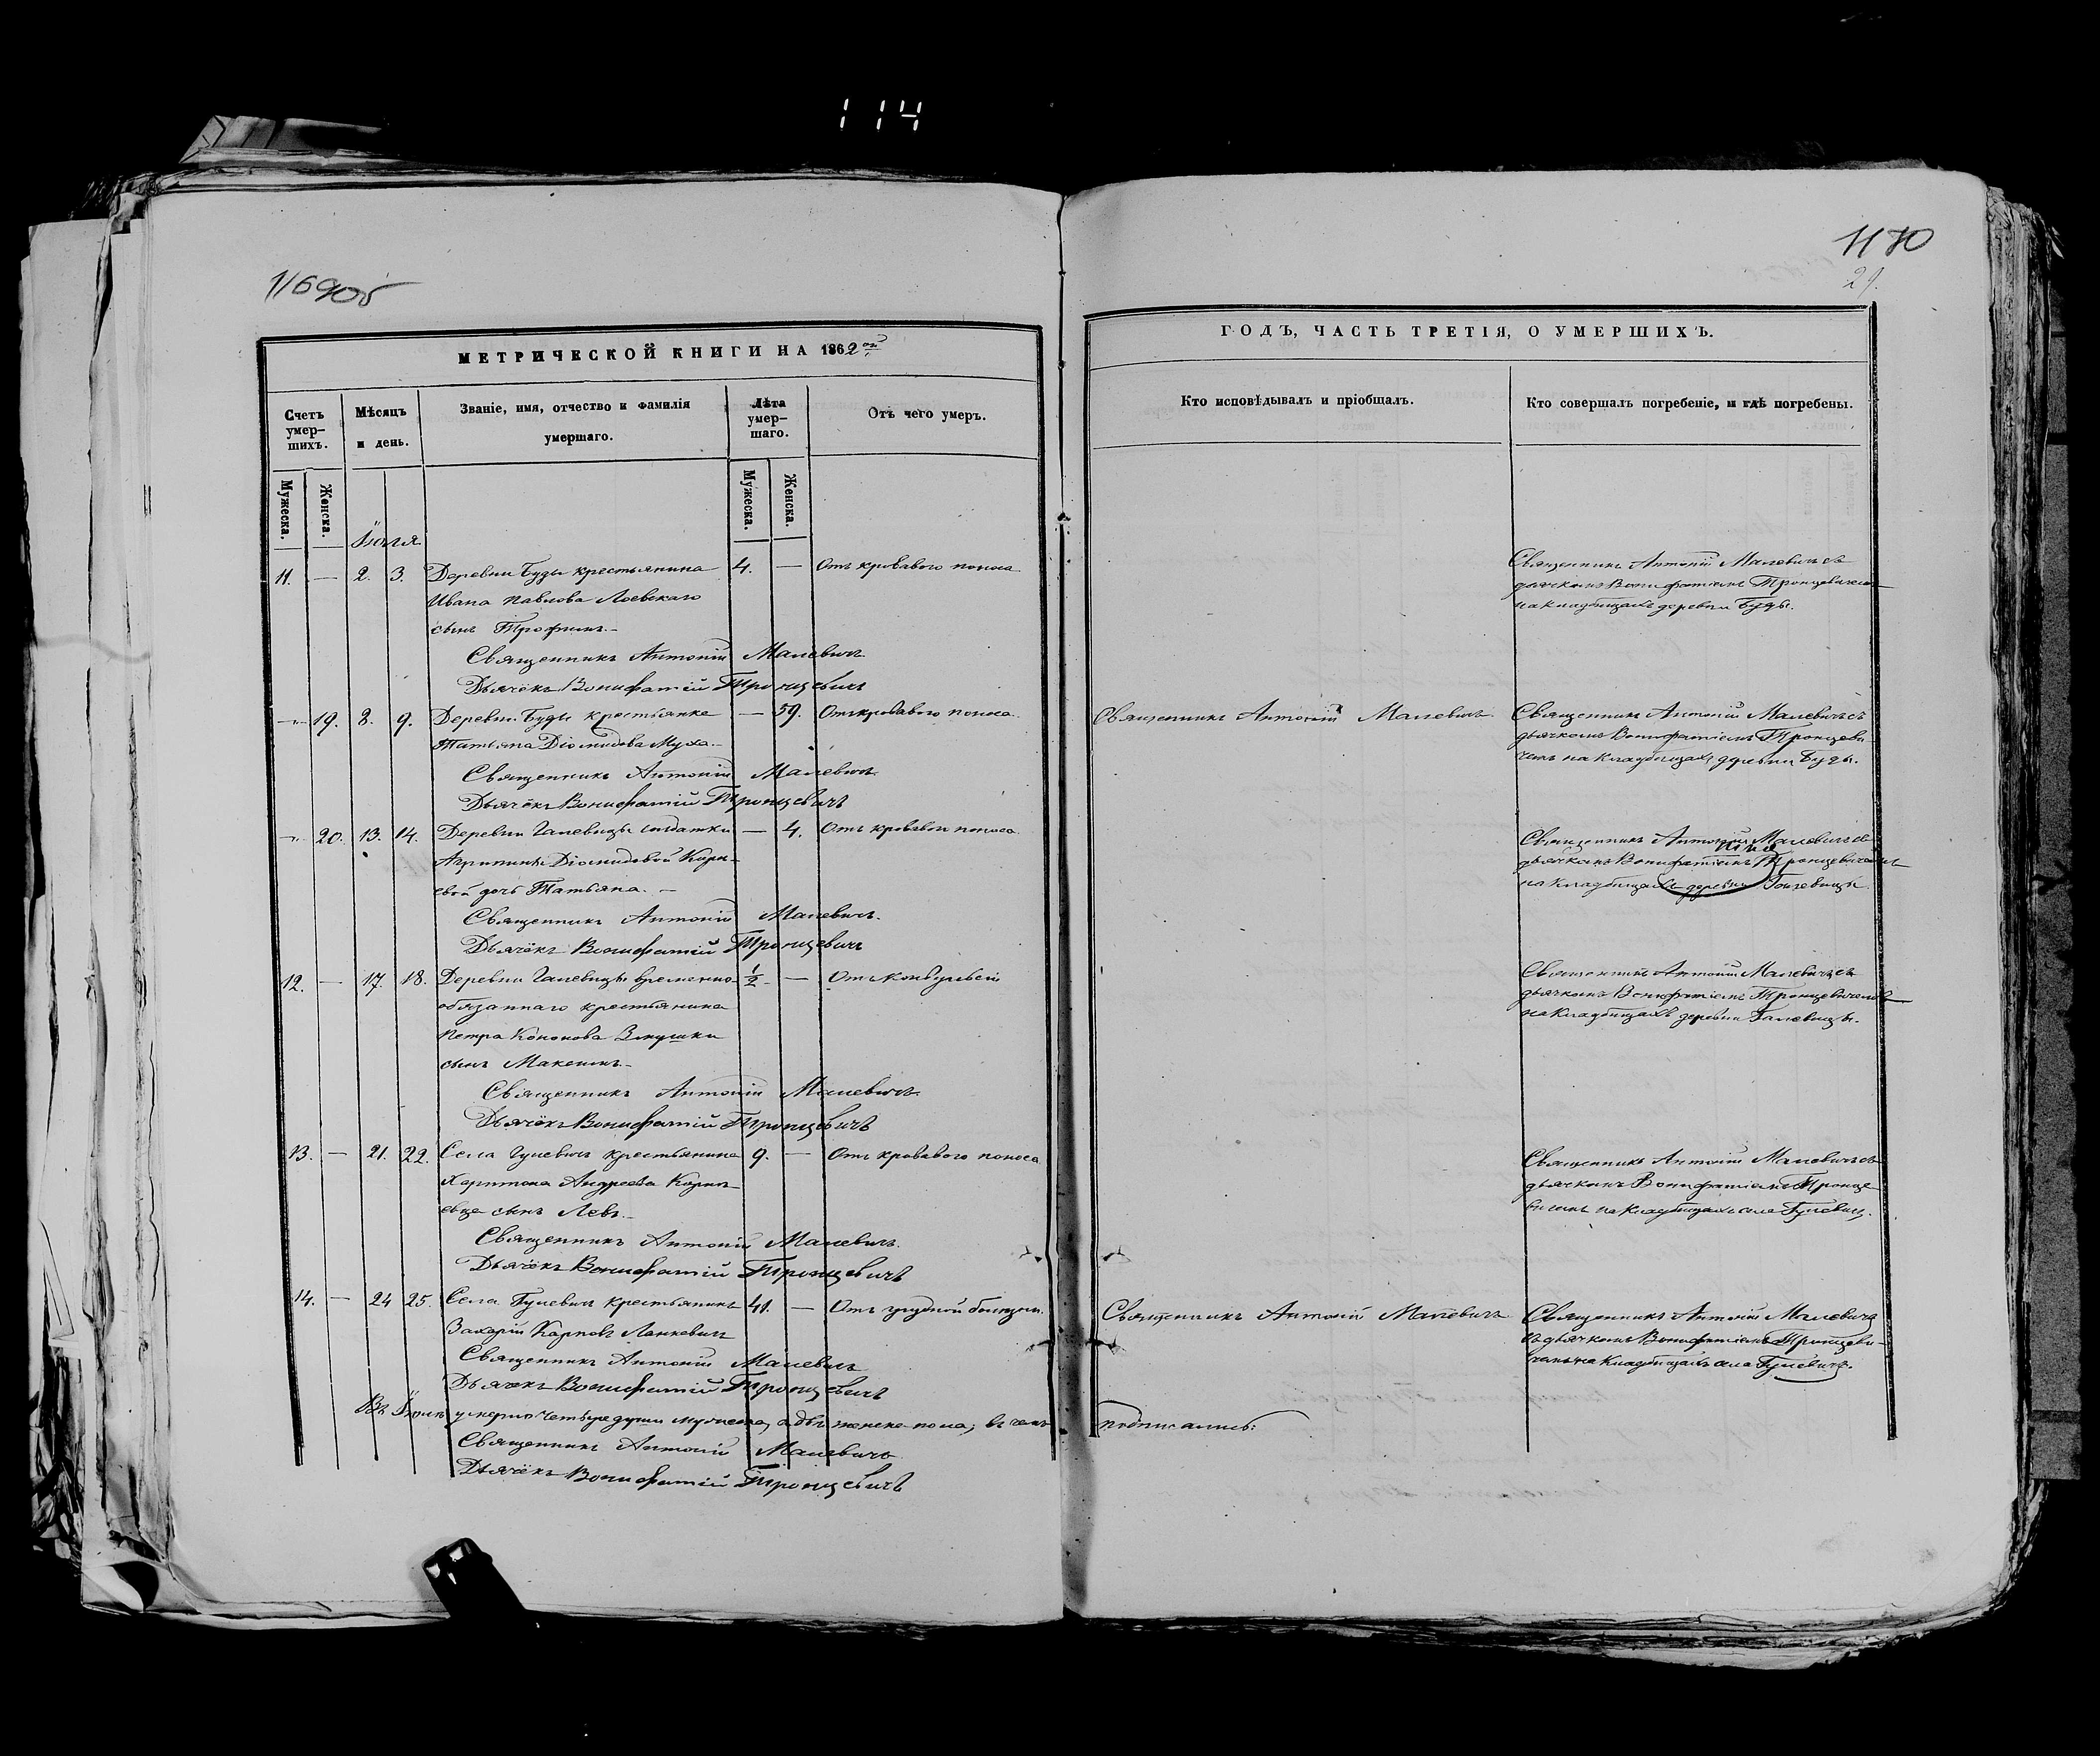 114
1169об
МЕТРИЧЕСКОЙ КНИГИ НА 1862ой
Счетъ умер-шихъ.
Мѣсяцъ и день.
Званіе, имя, отчество и фамилія умершаго.
Лѣта умер-шаго.
Отъ чего умеръ.
Мужеска.
Женска.
Мужеска.
Женска.
Іюля
11. — 2. 3. Деревни Буды крестьянина 4. — Отъ кроваваго поноса
Ивана Павлова Лоевскаго
сынъ Трофимъ.
Священникъ Антоній Малевичъ
Дьячёкъ Вонифатій Тронцевичъ
19. 8. 9. Деревни Буды крестьянка — 59. Отъ кроваваго поноса.
Татьяна Діомидова Муха.
Священникъ Антоній Малевичъ
Дьячёкъ Вонифатій Тронцевичъ
20. 13. 14. Деревни Галевицы солдатки — 4. Отъ кроваваго поноса
Агрипины Діомидовой Корн-
евой дочь Татьяна. —
Священникъ Антоній Малевичъ.
Дьячёкъ Вонифатій Тронцевичъ
12. — 17. 18. Деревни Галевицы временно- ½ — Отъ конвульсіи
обязаннаго крестьянина
Петра Кононова
сынъ Максимъ.
Священникъ Антоній Малевичъ
Дьячёкъ Вонифатій Тронцевичъ
13. — 21. 22. Села Гулевичъ крестьянина 9. — Отъ кроваваго поноса
Харитона Андреева Корне-
евца сынъ Левъ.
Священникъ Антоній Малевичъ.
Дьячёкъ Вонифатій Тронцевичъ
14. — 24 25. Села Гулевичъ крестьянинъ 41. — Отъ грудной болезни.
Захарій Карповъ Ланкевичъ
Священникъ Антоній Малевичъ
Дьячекъ Вонифатій Тронцевичъ
Въ Іюлѣ умерло четыре души мужеска, а двѣ женска пола; въ чемъ
Священникъ Антоній Малевичъ
Дьячёкъ Вонифатій Тронцевичъ
1170
29.
ГОДЪ, ЧАСТЬ ТРЕТІЯ, О УМЕРШИХЪ.
Кто исповѣдывалъ и пріобщалъ.
Кто совершалъ погребеніе, и гдѣ погребены.
Священникъ Антоній Малевичъ съ
дьячкомъ Вонифатіемъ Тронцевичемъ
на кладбищахъ деревни Буды.
Священникъ Антоній Малевичъ Священникъ Антоній Малевичъ съ
дьячкомъ Вонифатіемъ Тронцеви-
чемъ на кладбищахъ деревни Буды.
Священникъ Антоній Малевичъ съ
дьячкомъ Вонифатіемъ Тронцевичемъ
на кладбищахъ деревни Галевицы.
Священникъ Антоній Малевичъ съ
дьячкомъ Вонифатіемъ Тронцевичемъ
на кладбищахъ деревни Галевицы.
Священникъ Антоній Малевичъ съ
дьячкомъ Вонифатіемъ Тронце-
вичемъ на кладбищахъ села Гулевичъ.
Священникъ Антоній Малевичъ Священникъ Антоній Малевичъ
съ дьячкомъ Вонифатіемъ Тронцеви-
чемъ на кладбищахъ села Гулевичъ.
подписались: